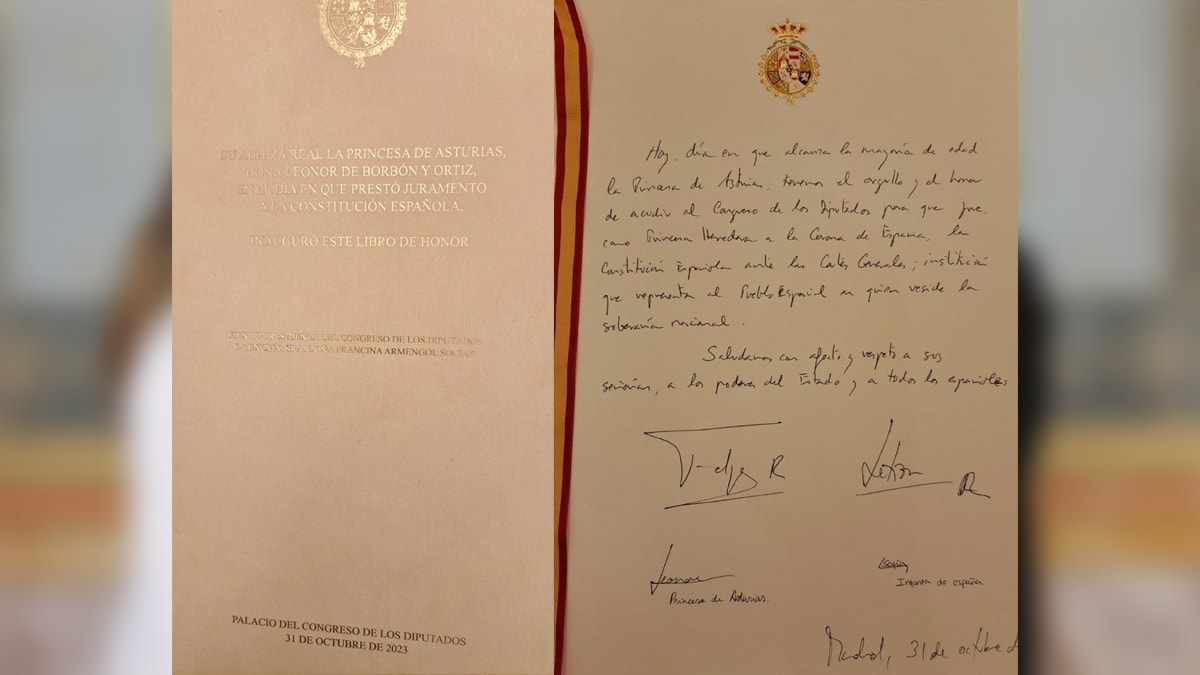 SU ALTEZA REAL LA PRINCESA DE ASTURIAS,
DOÑA LEONOR DE BORBÓN Y ORTIZ,
EN EL DÍA EN QUE PRESTÓ JURAMENTO
A LA CONSTITUCIÓN ESPAÑOLA,
INAUGURÓ ESTE LIBRO DE HONOR
SIENDO PRESIDENTA DEL CONGRESO DE LOS DIPUTADOS
FRANCINA ARMENGOL SOCIAS
PALACIO DEL CONGRESO DE LOS DIPUTADOS
31 DE OCTUBRE DE 2023
Hoy, día en que alcanza la mayoría de edad
la Princesa de Asturias, tenemos el orgullo y el honor
de acudir al Congreso de los Diputados para que jure,
como Princesa Heredera a la Corona de España, la
Constitución Española ante las Cortes Generales; institución
que representa al Pueblo Español en quien reside la
soberanía nacional.
Saludamos con afecto y respeto a sus
señorías, a los poderes del Estado y a todos los españoles
Felipe R
Letizia R
Leonor
Princesa de Asturias.
Sofía
Infanta de españa
Madrid, 31 de octubre d